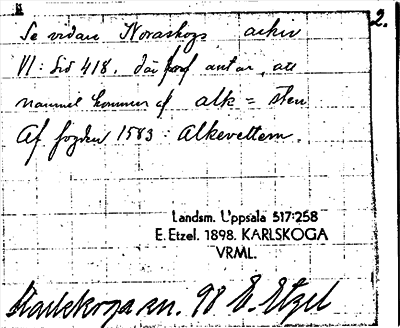 2.
Se vidare Noraskogs arkiv
VI: Sid 418, där förf antar, att
namnet kommer af alk = sten
Af fogden 1583: Alkevettern.
Landsm. Uppsala 517:258
E. Etzel. 1898. KARLSKOGA
VRML.
Karlskoga sn. 98 E. Etzel